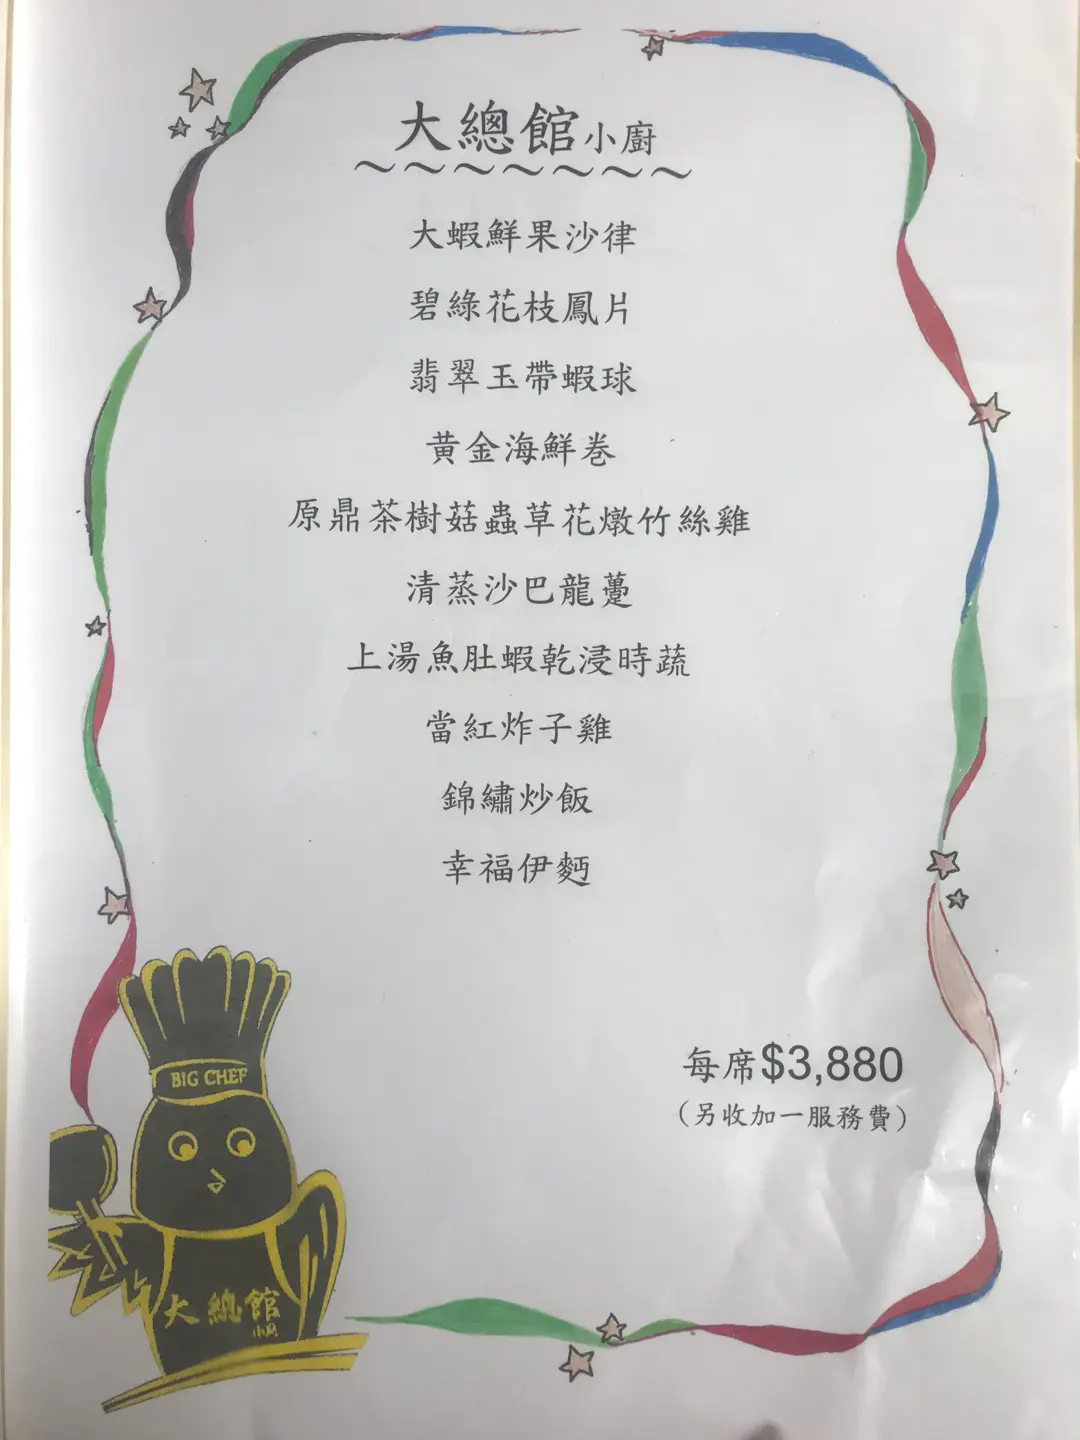 大總館小廚
～～～～～～～
大蝦鮮果沙律
碧綠花枝鳳片
翡翠玉帶蝦球
黃金海鮮巻
原鼎茶樹菇蟲草花燉竹絲雞
清蒸沙巴龍躉
上湯魚肚蝦乾浸時蔬
當紅炸子雞
錦繡炒飯
幸福伊麪
每席$3,880
（另收加一服務費）
BIG CHEF
大總館
小廚